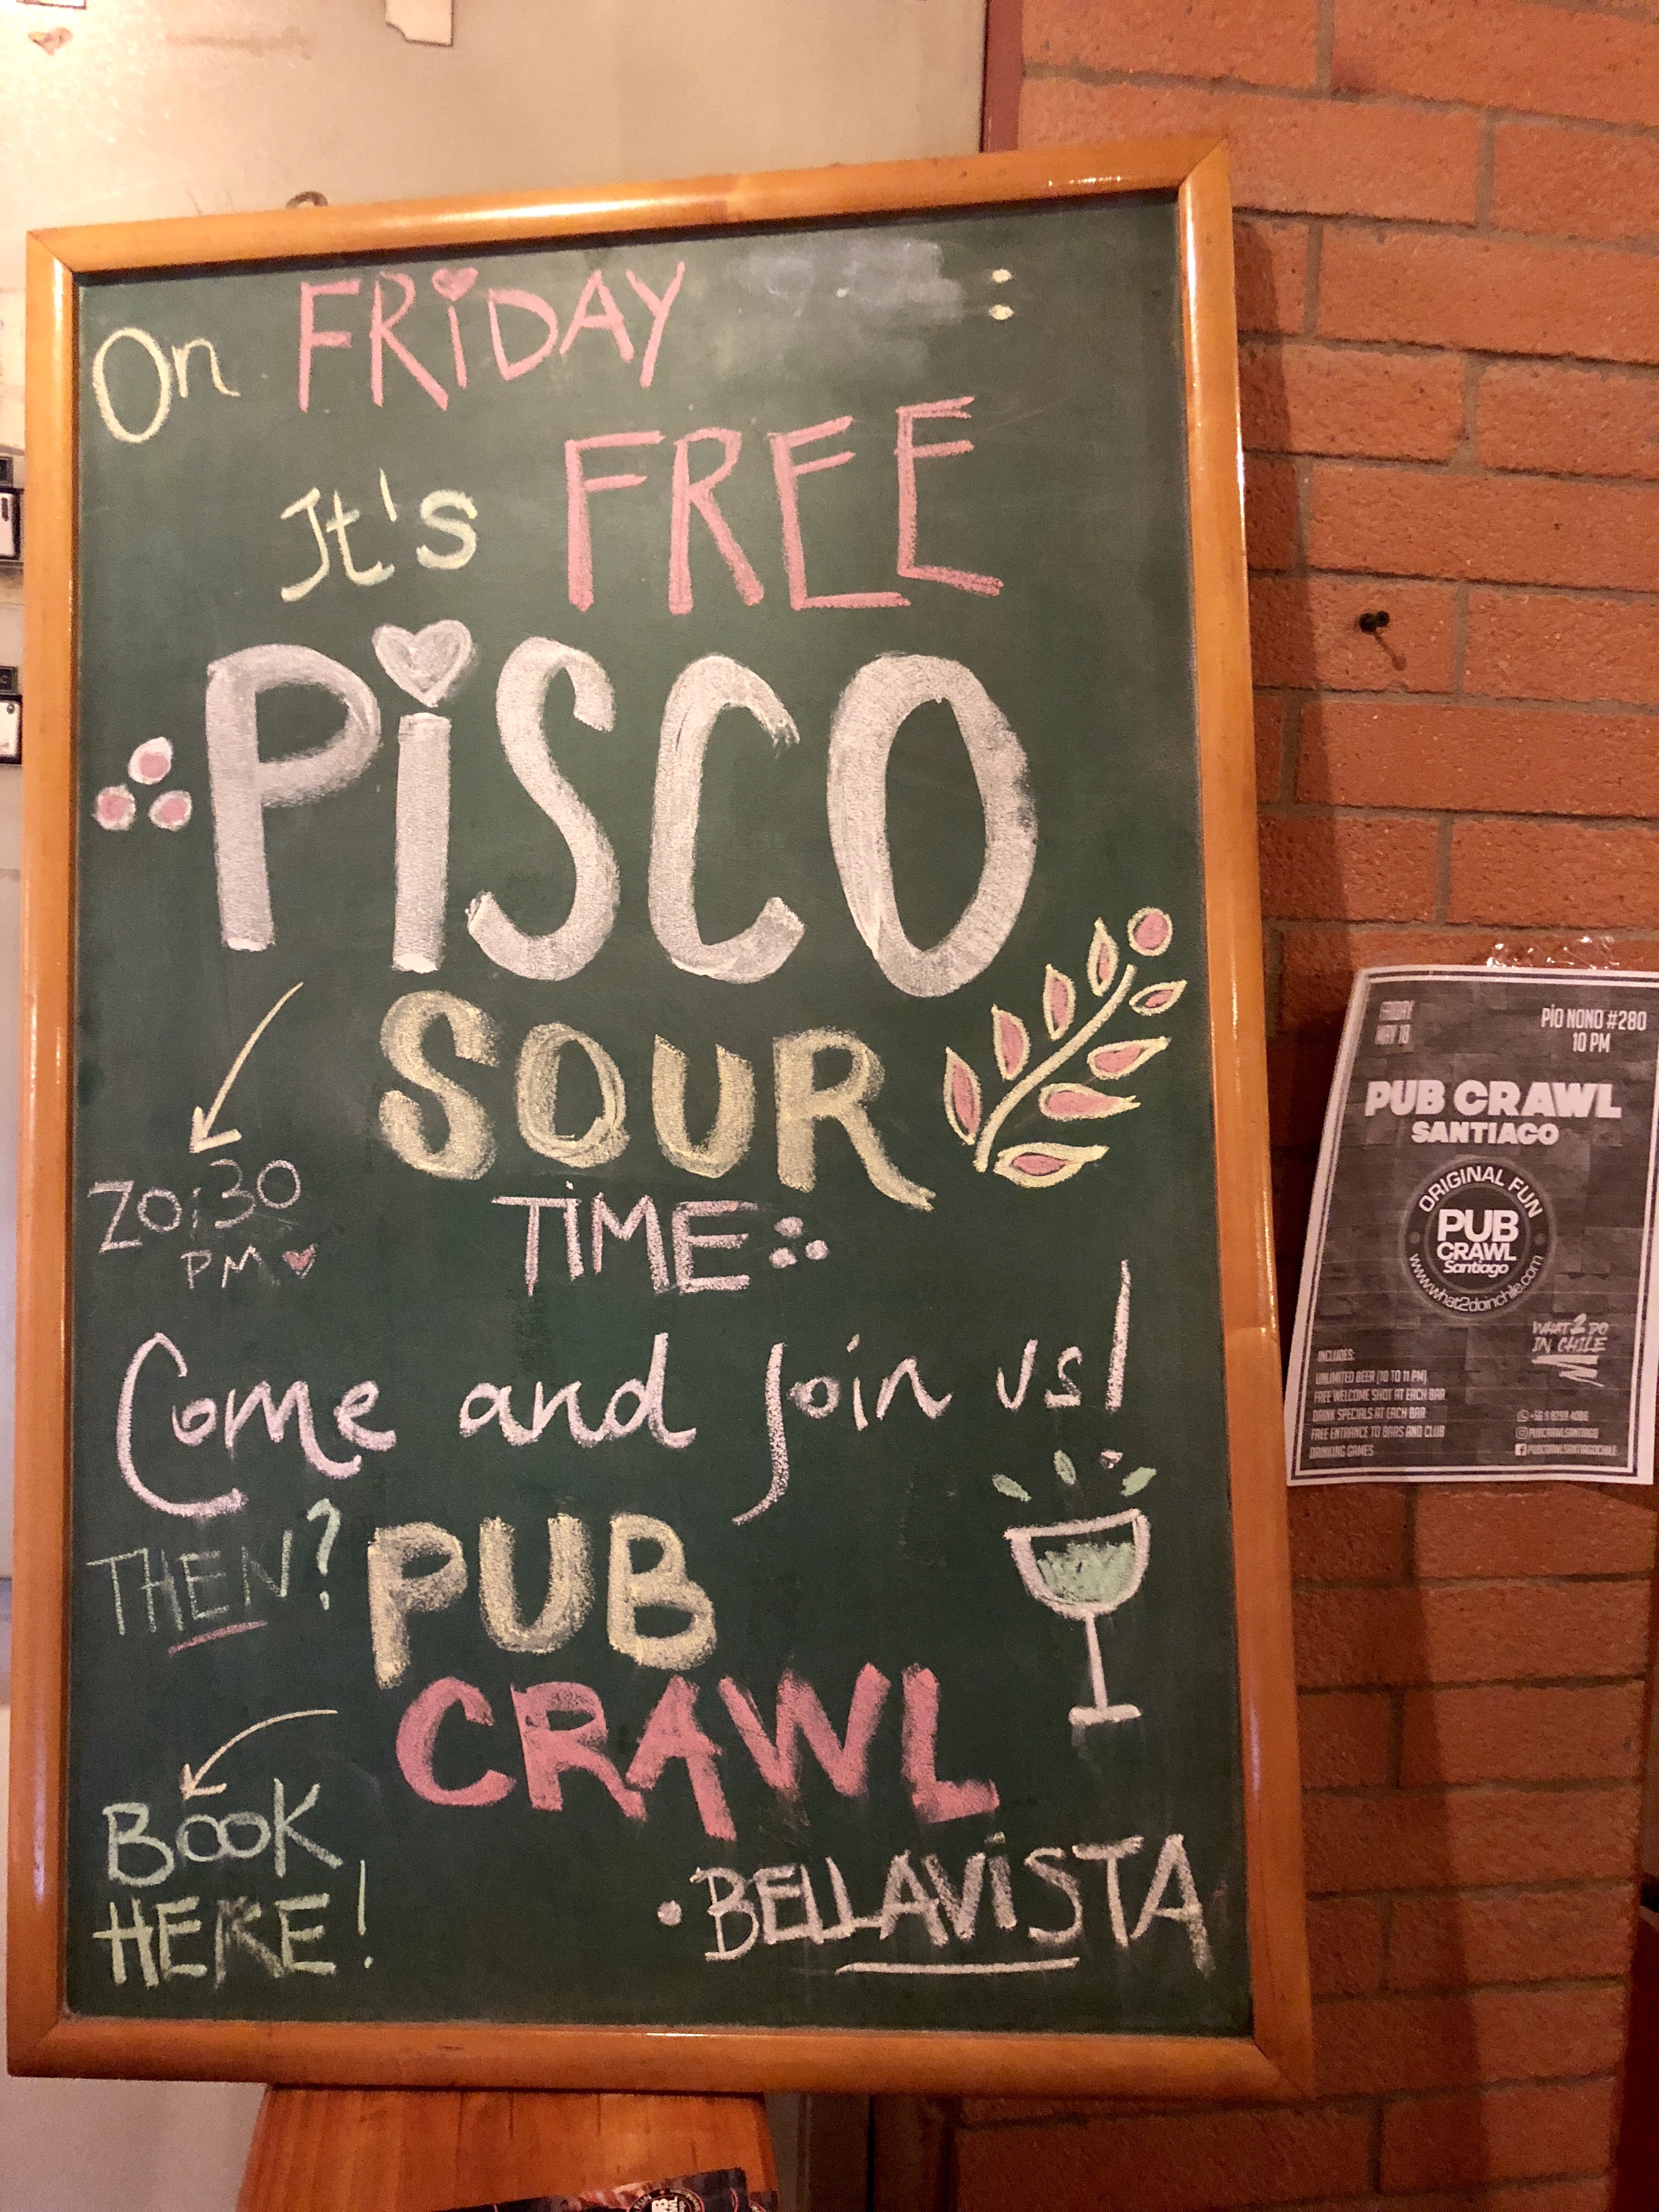 On FRiDAY :
It's FREE
PiSCO
SOUR
20:30
PM
TiME
Come and join us!
THEN? PUB
CRAWL
BOOK
HERE!
• BELLAViSTA
FRIDAY
MAY 18
PÍO NONO #280
10 PM
PUB CRAWL
SANTIAGO
ORIGINAL FUN
PUB
CRAWL
Santiago
www.what2doinchile.com
WHAT 2 DO
IN CHILE
INCLUDES:
UNLIMITED BEER (10 TO 11 PM)
FREE WELCOME SHOT AT EACH BAR
DRINK SPECIALS AT EACH BAR
FREE ENTRANCE TO BARS AND CLUB
DRINKING GAMES
PUBCRAWLSANTIAGO
PUBCRAWLSANTIAGOCHILE